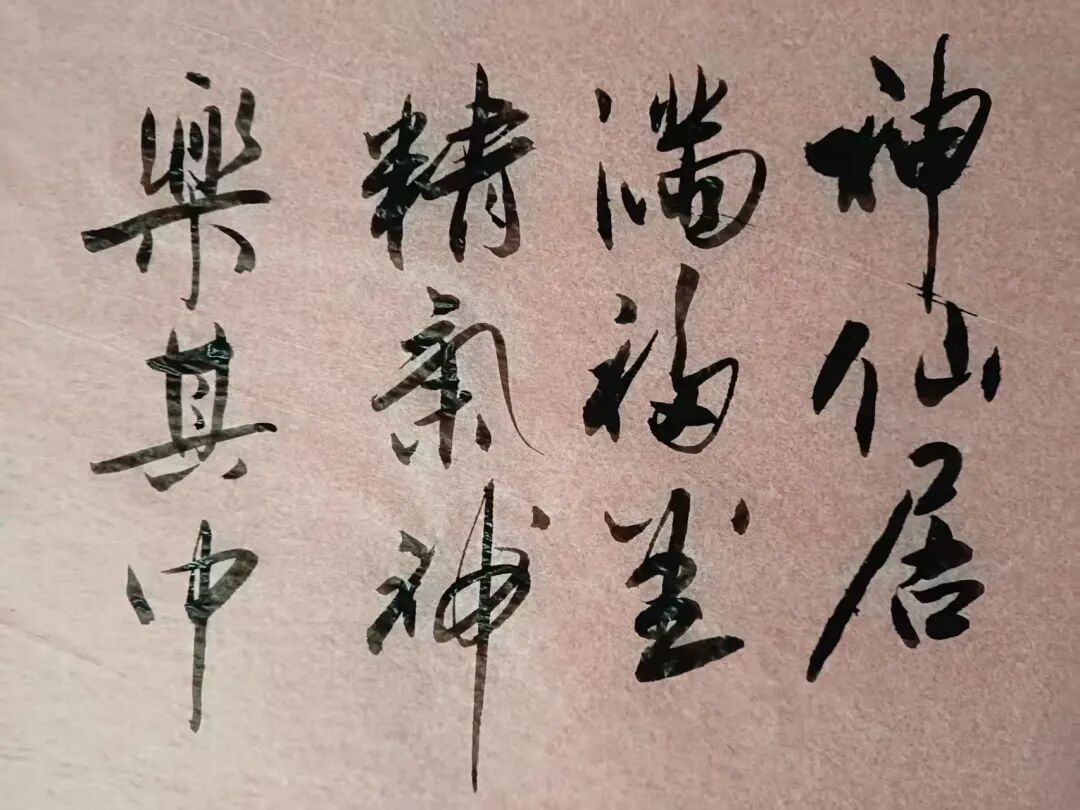 神仙居
滿福堂
精氣神
樂其中